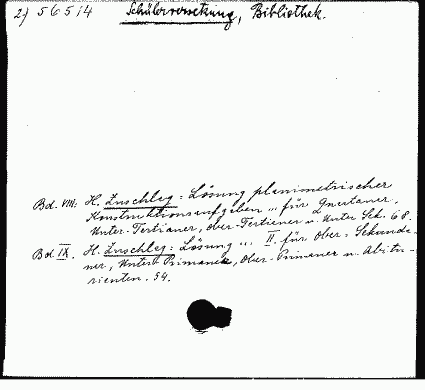 2) 56514 Schülerversetzung, Bibliothek.
Bd. VIII: H. Zuschlag: Lösung planimetrischer
Konstruktionsaufgaben ,, für Quartaner,
Unter-Tertianer, Ober-Tertianer u. Unter Sek. 68.
Bd. IX. H. Zuschlag: Lösung ,,. II. für Ober-Sekunda-
ner, Unter Primaner, Ober-Primaner u. Abitu-
rienten. 54.